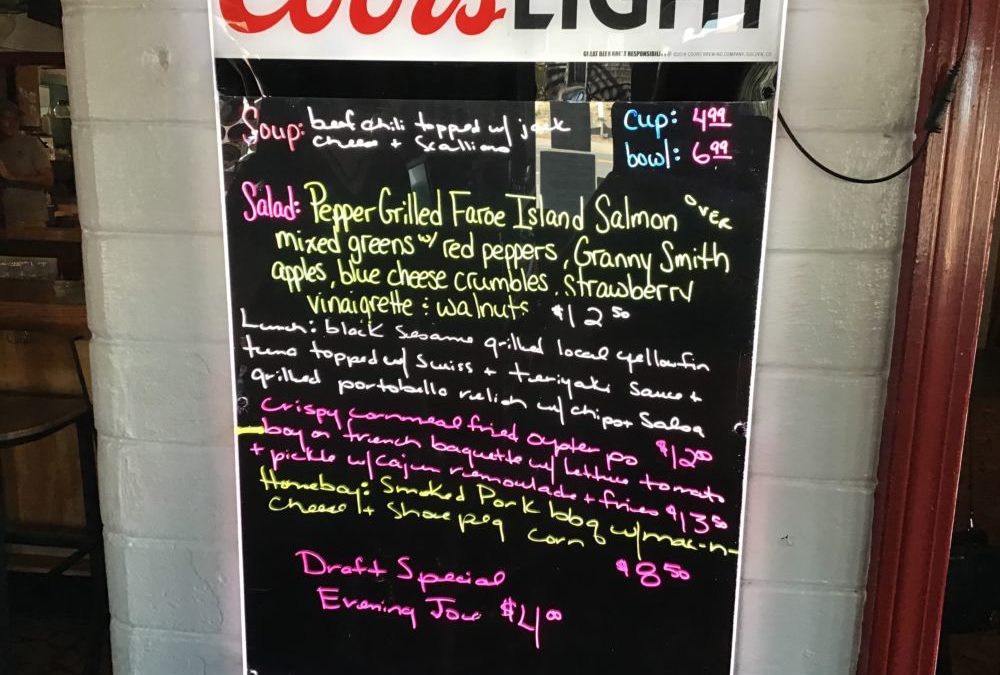 Coors LIGHT
GREAT BEER GREAT RESPONSIBILITY © 2018 COORS BREWING COMPANY, GOLDEN, CO
Soup: beef chili topped w/ jack
cheese + scallions
Cup: 4.99
bowl: 6.99
Salad: Pepper Grilled Faroe Island Salmon over
mixed greens w/ red peppers, Granny Smith
apples, blue cheese crumbles, strawberry
vinaigrette & walnuts $12.50
Lunch: black sesame grilled local yellowfin
tuna topped w/ swiss + teriyaki sauce +
grilled portobello relish w/ chips + salsa
$12.00
Crispy cornmeal fried oyster po
boy on french baguette w/ lettuce tomato
+ pickle w/ cajun remoulade + fries $13.50
Homeboy: Smoked Pork bbq w/ mac-n-
cheese + shoe peg corn
$8.50
Draft Special
Evening Joe $4.00